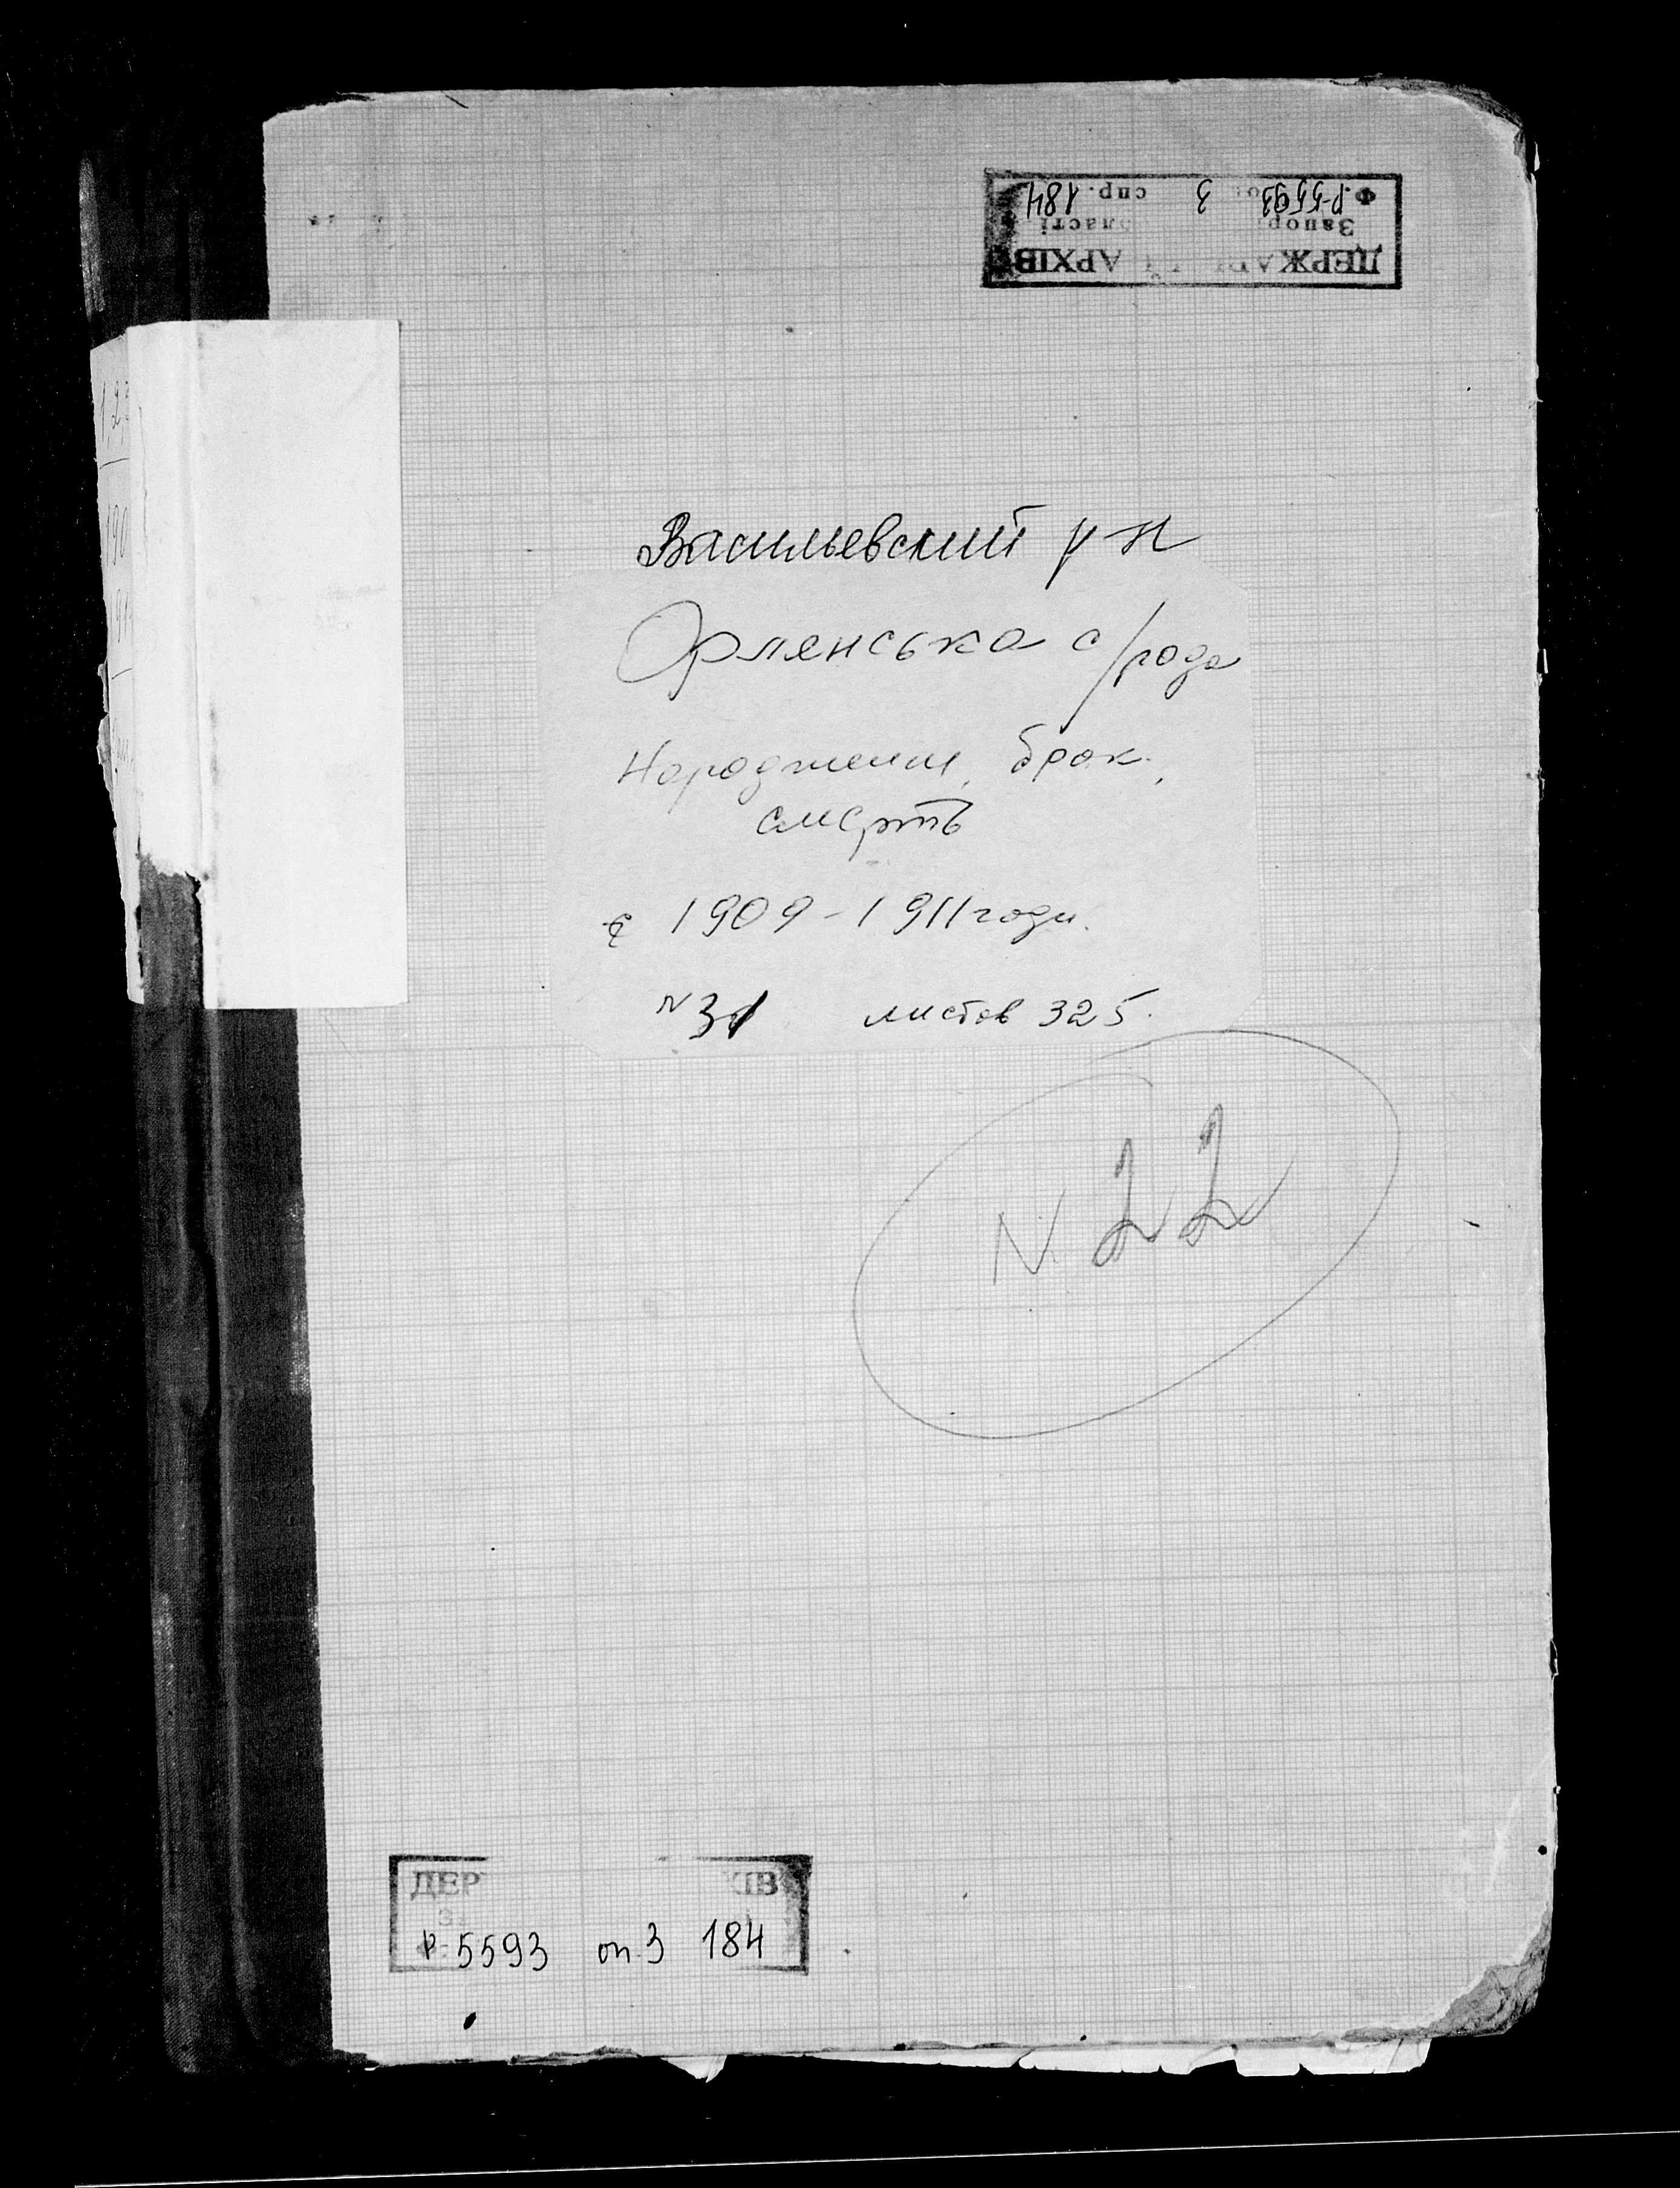 ДЕРЖАВ АРХІВ
Запор бласті
Ф. Р-5593 3 спр. 184
Васильевский р-н
Орлянська с/рада
Народження, брак,
смерть
с 1909-1911 годи.
№31 листов 325.
N 22
ДЕР ХІВ
Р-5593 оп.3 184